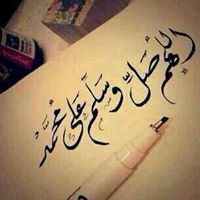 اللهم صل وسلم على محمد